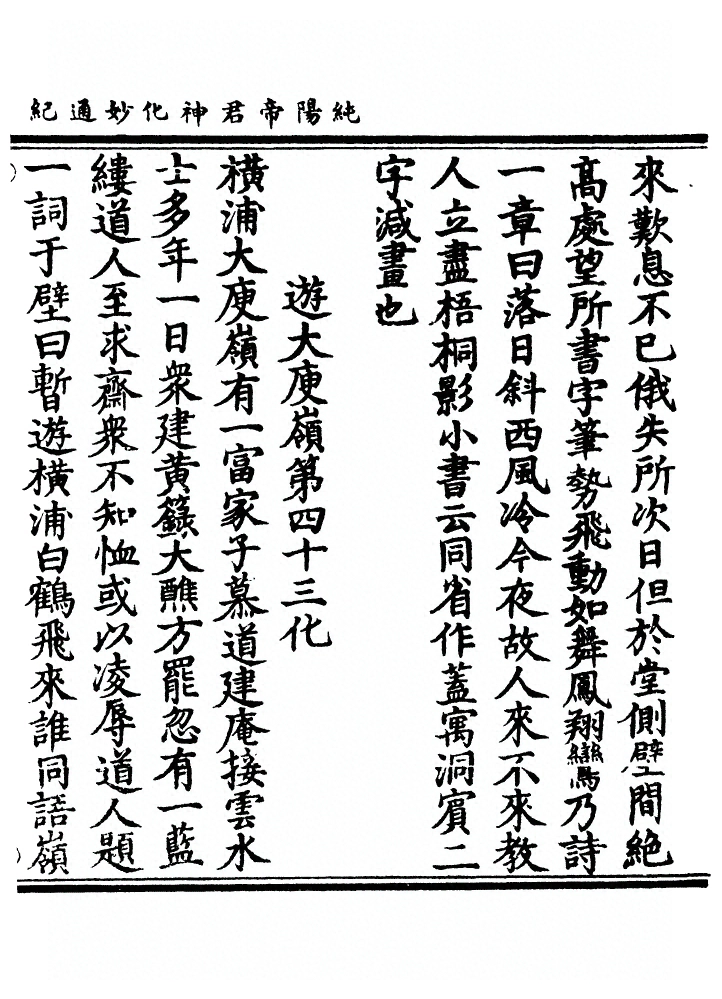 純陽帝君神化妙通紀
來歎息不已俄失所次日但於堂側壁間絕
高處望所書字筆勢飛動如舞鳳翔鸞乃詩
一章曰落日斜西風冷今夜故人來不來教
人立盡梧桐影小書云同省作蓋寓洞賓二
字減畫也
遊大庾嶺第四十三化
橫浦大庾嶺有一富家子慕道建庵接雲水
士多年一日衆建黃籙大醮方罷忽有一藍
縷道人至求齋衆不知恤或以凌辱道人題
一詞于壁曰暫遊橫浦白鶴飛來誰同語嶺